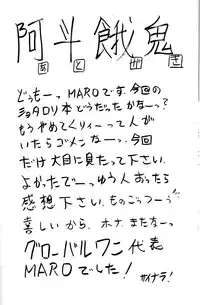 阿斗餓鬼
あとがき
どぅもーっ MAROです。今回の
ショタロリ本どうだったかなーっ?
もうやめてくりィーって人が
いたらゴメンなーっ、今回
だけ大目に見たって下さい。
よかったでーっゆう人あったら
感想下さい。ものごっつーう
喜しいから。ホナ、またなーっ
グローバルワン代表
MAROでした!
サイナラ!